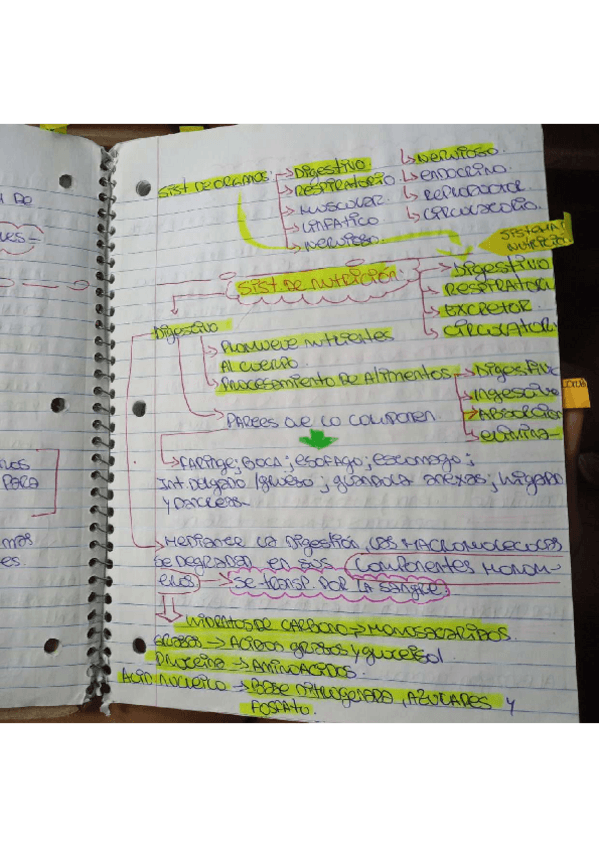 SIST DE ORGANOS:
→ Digestivo.
→ RESPIRATORIO
→ MUSCULAR.
→ LINFATICO
→ NERVIOSO.
↳ NERVIOSO.
↳ ENDOCRINO.
↳ REPRODUCTOR.
↳ CIRCULATORIO.
SISTEMA
NUTRICIÓN
SIST. DE NUTRICIÓN:
→ DIGESTIVO
→ RESPIRATORI
→ EXCRETOR.
→ CIRCULATOR
Digestivo
→ PROMUEVE NUTRIENTES
AL CUERPO.
→ PROCESAMIENTO DE ALIMENTOS
→ DIGESTIVE
→ INGESTIVE
→ ABSORCION
→ ELIMINA-
→ PARTES QUE LO COMPONEN.
→ FARINGE; BOCA; ESOFAGO; ESTOMAGO;
INT DELGADO /GRUESO; GLANDULA ANEXAS; HIGADO
Y PANCREAS.
→ MEDIANTE LA DIGESTIÓN, LAS MACROMOLECOLAS
SE DEGRADAN EN SUS COMPONENTES MONOM-
EROS → SE TRANSP. POR LA SANGRE.
HIDRATOS DE CARBONO → MONOSACARIDOS.
GRASAS → ACIDOS GRASOS Y GLICEROL
PROTEINA → AMINOACIDOS.
ACID. NUCLEICO → BASE NITROGENADA, AZUCARES Y
FOSFATO.